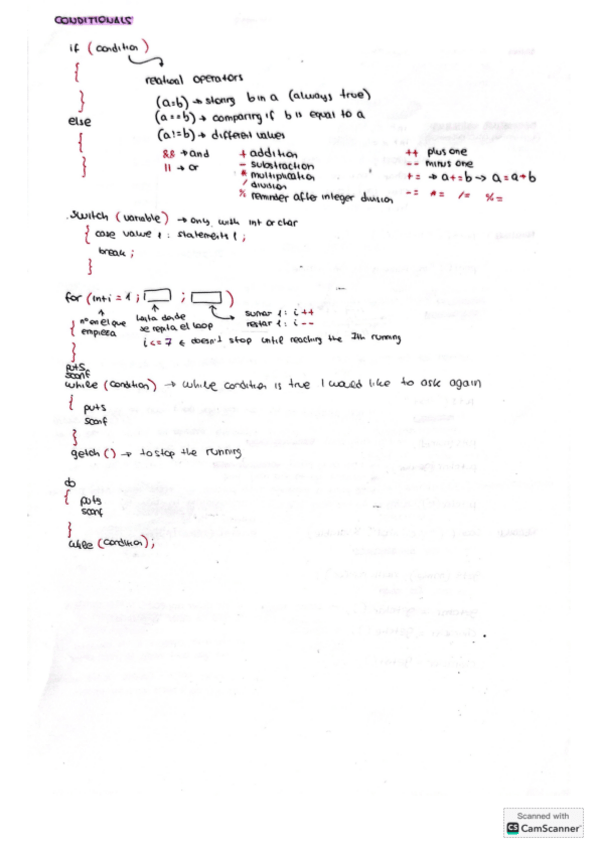 CONDITIONALS
if (condition)
{
relational operators
}
(a=b) → storing b in a (always true)
else
(a==b) → comparing if b is equal to a
{
(a!=b) → different values
}
&& → and
|| → or
+ addition
- substraction
* multiplication
/ division
% reminder after integer division
++ plus one
-- minus one
+= → a+=b → a=a+b
-= *= /= %=
switch (variable) → only with int or char
{ case value 1 : statements 1 ;
break ;
}
for (int i = 1 ; ; )
nº en el que
empieza
hasta donde
se repita el loop
sumar 1 : i ++
restar 1 : i --
{
i <= 7 ← doesn't stop until reaching the 7th running
}
puts
scanf
while (condition) → while condition is true I would like to ask again
{ puts
scanf
}
getch () → to stop the running
do
{ puts
scanf
}
while (condition) ;
Scanned with
CS CamScanner